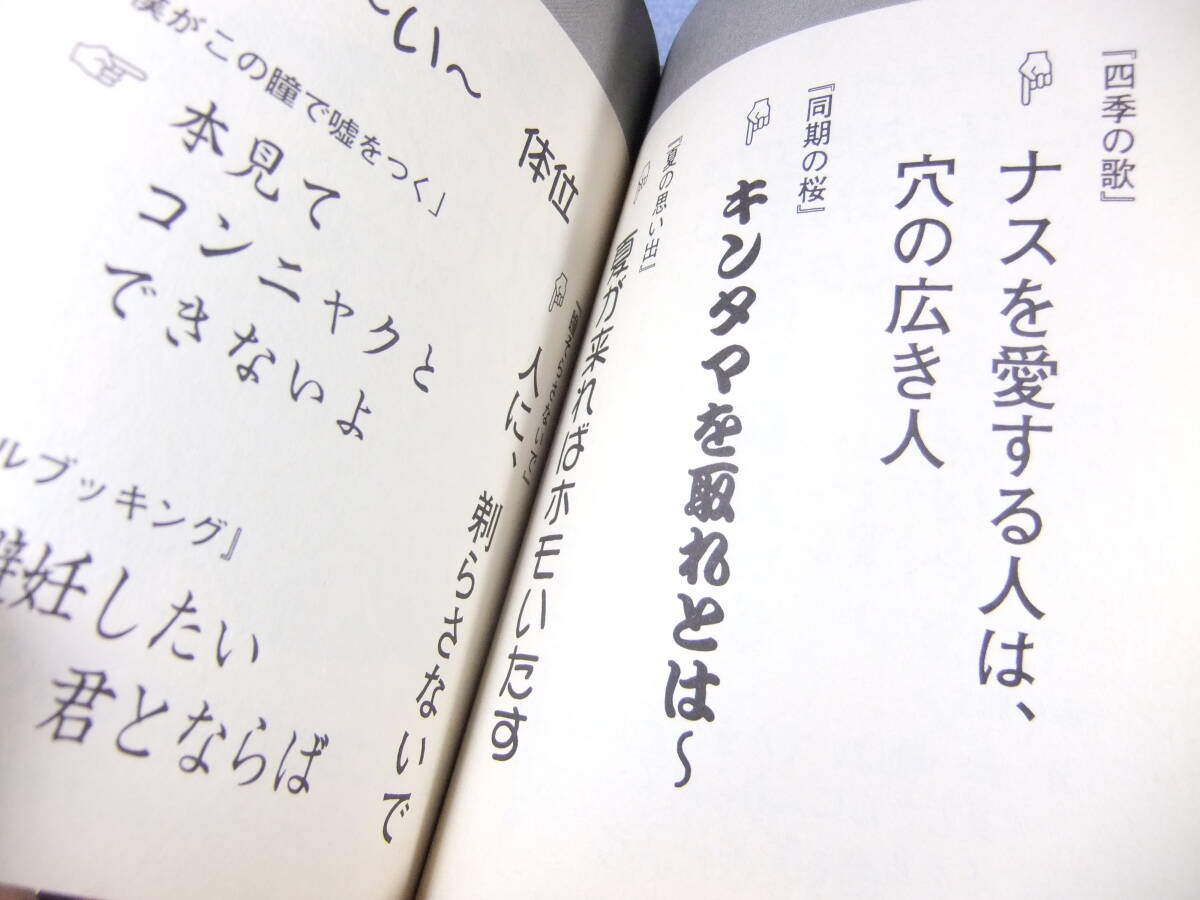 『四季の歌』
☞
ナスを愛する人は、
穴の広き人
『同期の桜』
☞
キンタマを取れとは〜
『夏の思い出』
☞
夏が来ればホモいたす
体位
☞
人に、剃らさないで
い〜
がこの瞳で嘘をつく」
☞
本見て
コンニャクと
できないよ
ルブッキング』
妊したい
君とならば